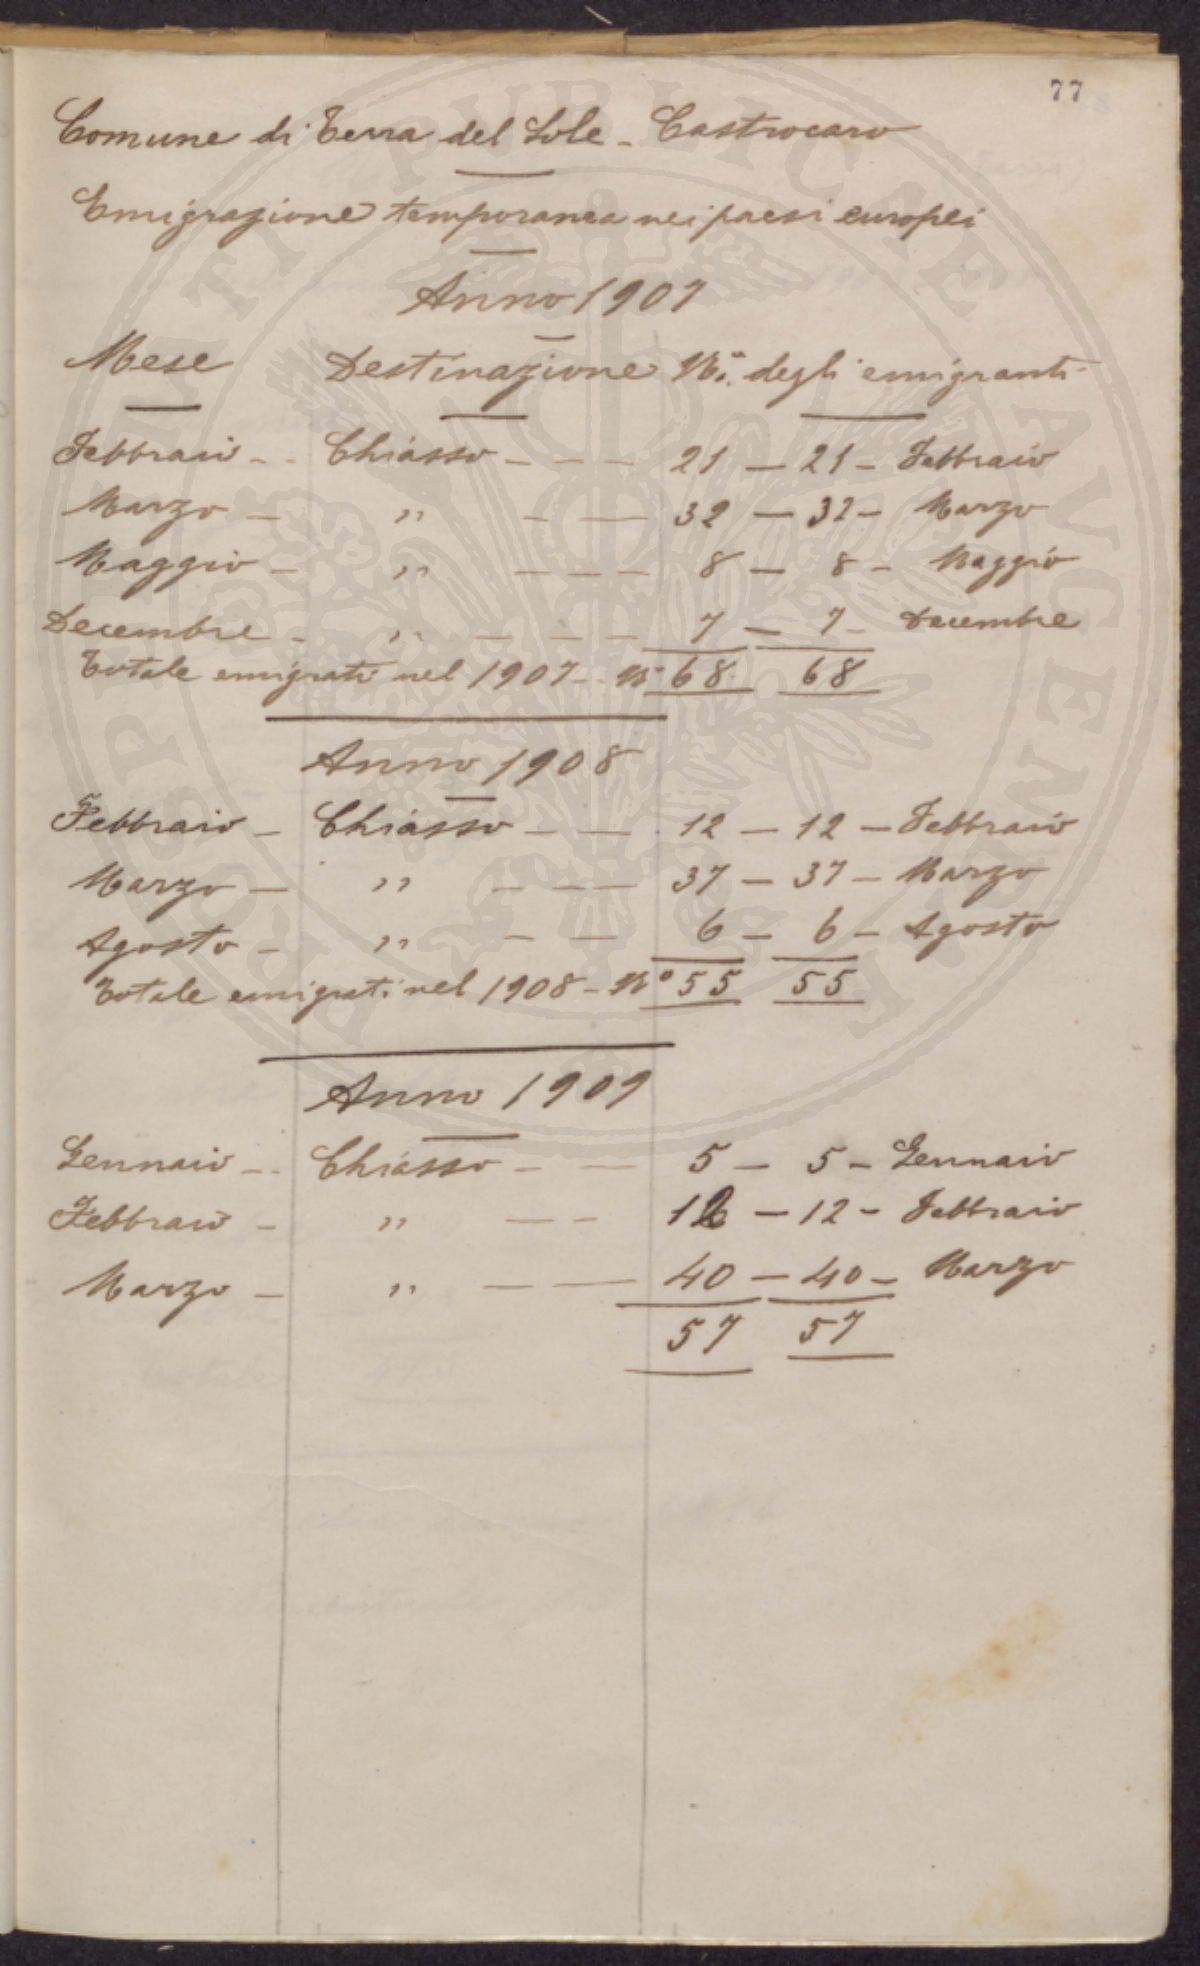 77
Comune di Terra del Sole - Castrocaro
Emigrazione temporanea nei paesi europei
Anno 1907
Mese Destinazione Ni. degli emigranti
Febbraio - - Chiasso - - - 21 - 21 - Febbraio
Marzo - " - - 32 - 32 - Marzo
Maggio - " - - - 8 - 8 - Maggio
Decembre - " - - - 7 - 7 - Decembre
Totale emigrati nel 1907 - N° 68 68
Anno 1908
Febbraio - Chiasso - - 12 - 12 - Febbraio
Marzo - " - - - 37 - 37 - Marzo
Agosto - " - - 6 - 6 - Agosto
Totale emigrati nel 1908 - N° 55 55
Anno 1909
Gennaio - - Chiasso - - 5 - 5 - Gennaio
Febbraio - " - - 12 - 12 - Febbraio
Marzo - " - - 40 - 40 - Marzo
57 57